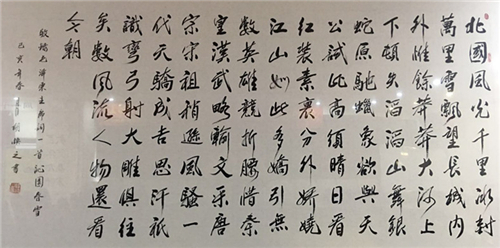 北國風光千里冰封
萬里雪飄望長城内
外惟餘莽莽大河上
下頓失滔滔山舞銀
蛇原馳蠟象欲與天
公試比高須晴日看
紅裝素裹分外嬌嬈
江山如此多嬌引無
數英雄競折腰惜秦
皇漢武略輸文采唐
宗宋祖稍遜風騷一
代天驕成吉思汗祇
識彎弓射大雕俱往
矣數風流人物還看
今朝
敬錄毛澤東主席詞一首沁園春雪
己亥年春書